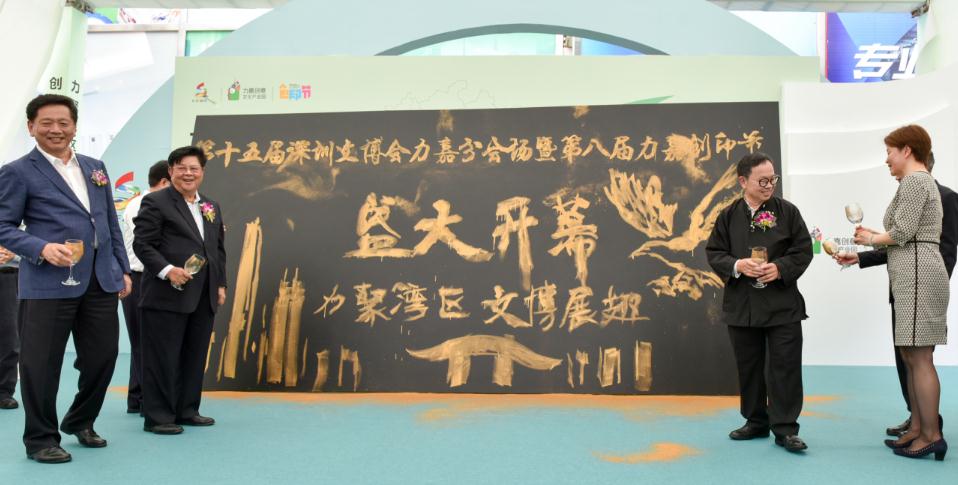 力嘉创意
文化产业园
创印节
专业
第十五届深圳文博会力嘉分会场暨第八届力嘉创印节
盛大开幕
力聚湾区 文博展翅
力嘉创意